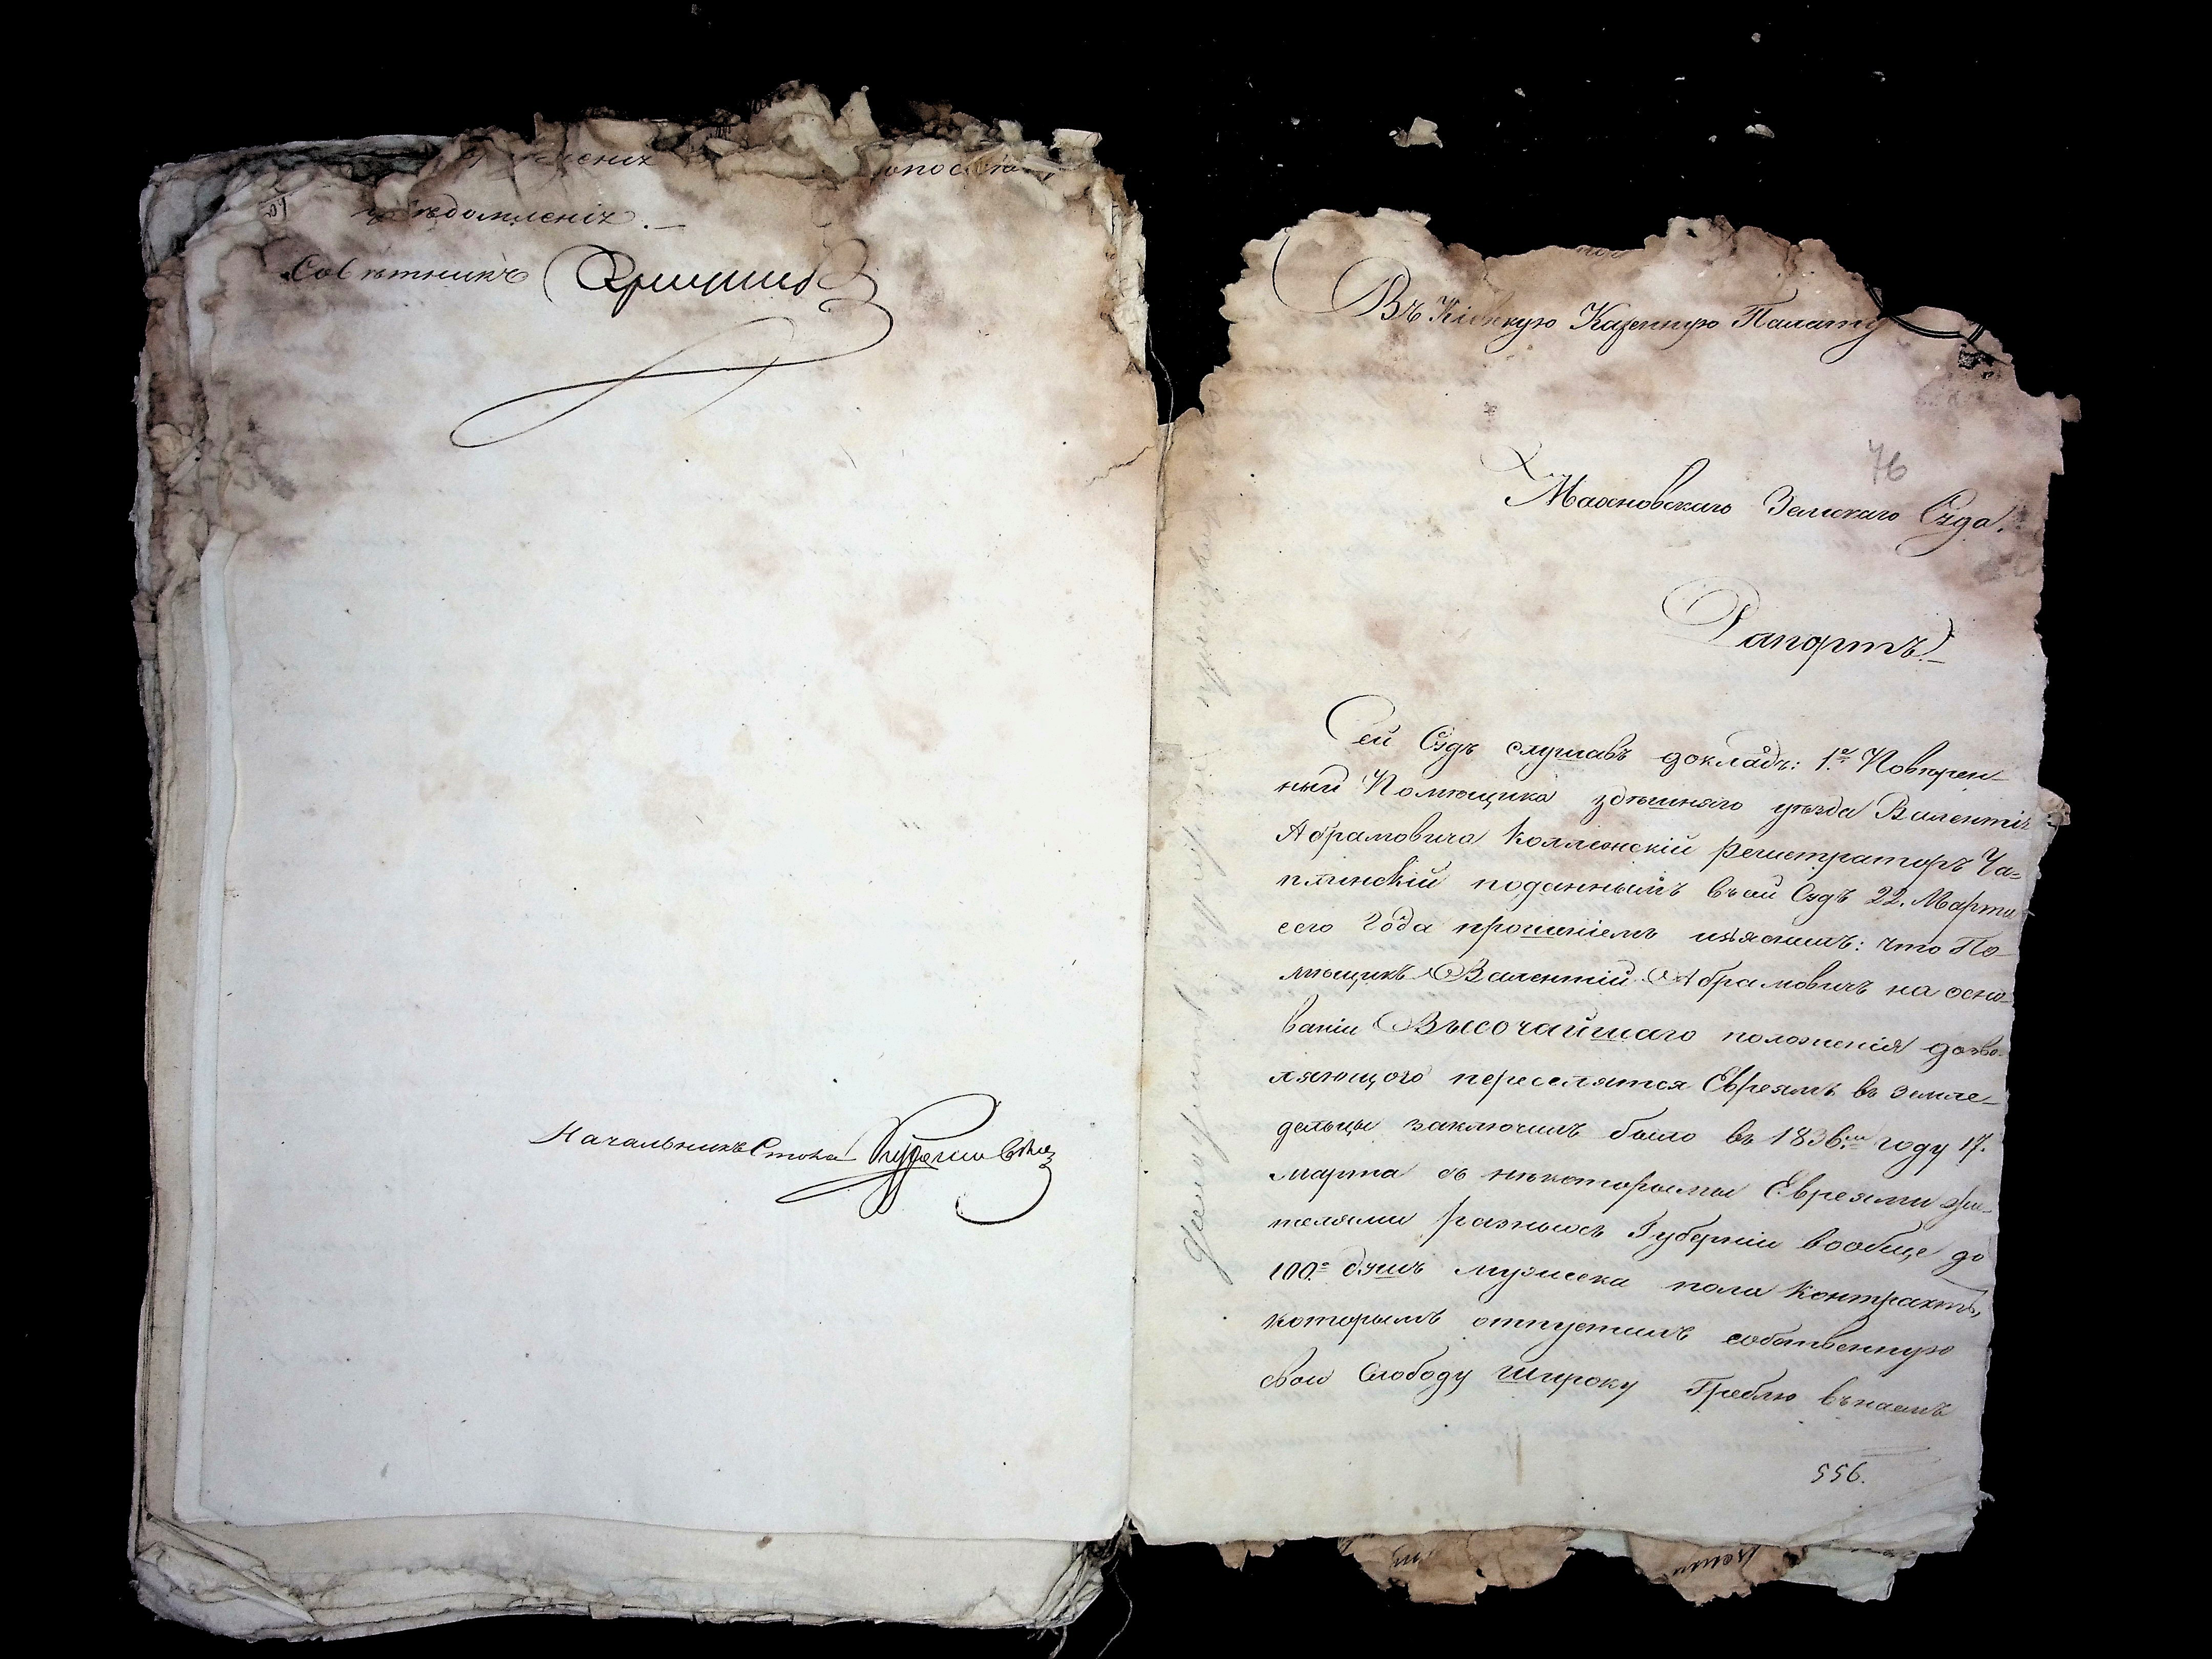 увѣдомленіи.
Совѣтникъ
Начальникъ Стола
Въ Кіевскую Казенную Палату
76
Махновскаго Земскаго Суда.
Рапортъ.
Сей Судъ слушавъ докладъ: 1е Повѣрен-
ный Помѣщика здѣшняго уѣзда Валентія
Абрамовича Коллежскій Регистраторъ Ча-
плинскій поданнымъ въ сей Судъ 22. Марта
сего года прошеніемъ изъяснилъ: что По-
мѣщикъ Валентій Абрамовичъ на осно-
ваніи Высочайшаго положенія дозво-
ляющого переселятся Евреямъ въ земле-
дельцы заключилъ было въ 1836м году 17.
марта съ нѣкоторыми Евреями жи-
телями разныхъ Губерніи вообще до
100е душъ мужеска пола контрактъ,
которымъ отпустилъ собственную
свою Слободу Широку Греблю въ наемъ
556.